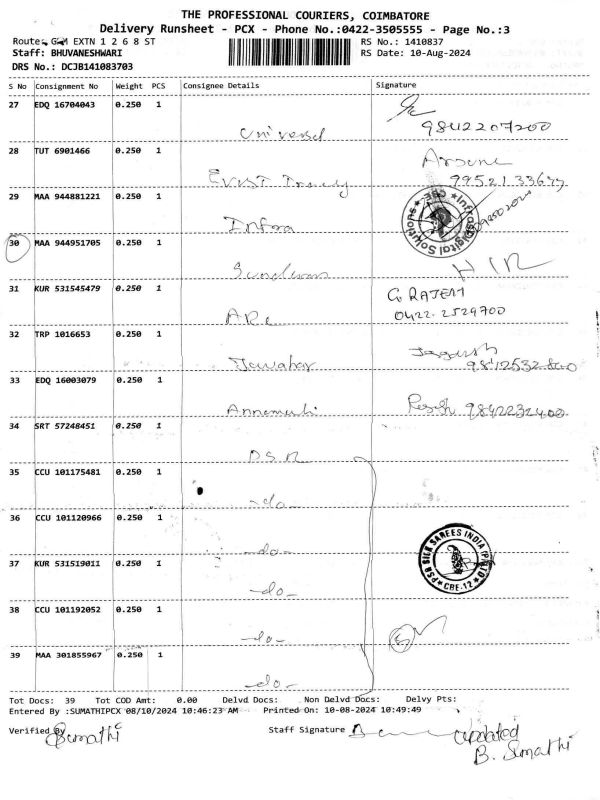 THE PROFESSIONAL COURIERS, COIMBATORE
Delivery Runsheet - PCX - Phone No.:0422-3505555 - Page No.:3
Route: G M EXTN 1 2 6 8 ST
RS No.: 1410837
Staff: BHUVANESHWARI
RS Date: 10-Aug-2024
DRS No.: DCJB141083703
S No Consignment No Weight PCS Consignee Details Signature
27 EDQ 16704043 0.250 1
Universal 9842207200
28 TUT 6901466 0.250 1
29 MAA 944881221 0.250 1
Infra Digital Solutions CBE
30 MAA 944951705 0.250 1
31 KUR 531545479 0.250 1
G RAJESH
0422-2529700
32 TRP 1016653 0.250 1
Jawahar
33 EDQ 16003079 0.250 1
9842232400
34 SRT 57248451 0.250 1
35 CCU 101175481 0.250 1
-do-
36 CCU 101120966 0.250 1
-do-
37 KUR 531519011 0.250 1
PSR SILK SAREES INDIA (P) LTD
CBE-12
-do-
38 CCU 101192052 0.250 1
-do-
39 MAA 301855967 0.250 1
-do-
Tot Docs: 39 Tot COD Amt: 0.00 Delvd Docs: Non Delvd Docs: Delvy Pts:
Entered By :SUMATHIPCX 08/10/2024 10:46:23 AM Printed On: 10-08-2024 10:49:49
Verified By Sumathi Staff Signature
updated
B. Sumathi